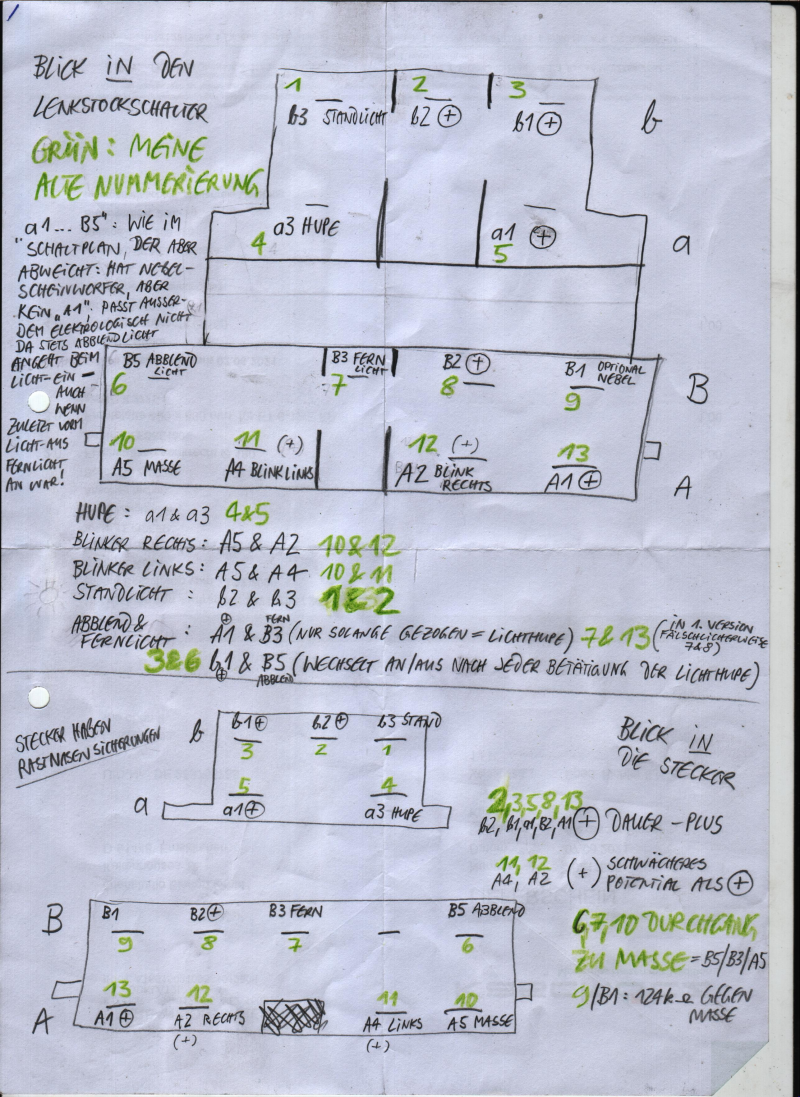 BLICK IN DEN
LENKSTOCKSCHALTER
GRÜN: MEINE
ALTE NUMMERIERUNG
a1... B5": WIE IM
"SCHALTPLAN, DER ABER
ABWEICHT: HAT NEBEL-
SCHEINWERFER, ABER
KEIN "A1". PASST AUSSER-
DEM ELEKTROLOGISCH NICHT
DA STETS ABBLENDLICHT
ANGEHT BEIM
LICHT-EIN-
AUCH
WENN
ZULETZT VORM
LICHT-AUS
FERNLICHT
AN WAR!
1 2 3
b3 STANDLICHT b2 + b1 + b
a3 HUPE a1 + a
4 5
B5 ABBLEND LICHT B3 FERN LICHT B2 + B1 OPTIONAL NEBEL B
6 7 8 9
10 11 (+) 12 (+) 13
A5 MASSE A4 BLINK LINKS A2 BLINK RECHTS A1 + A
HUPE: a1 & a3 4&5
BLINKER RECHTS: A5 & A2 10&12
BLINKER LINKS: A5 & A4 10&11
STANDLICHT : b2 & b3 1&2
ABBLEND &
FERNLICHT : A1 + & B3 FERN (NUR SOLANGE GEZOGEN = LICHTHUPE) 7&13 (IN 1. VERSION FÄLSCHLICHERWEISE 7&8)
3&6 b1 + & B5 ABBLEND (WECHSELT AN/AUS NACH JEDER BETÄTIGUNG DER LICHTHUPE)
STECKER HABEN
RASTNASENSICHERUNGEN
b b1 + b2 + b3 STAND
3 2 1
5 4
a a1 + a3 HUPE
BLICK IN
DIE STECKER
2,3,5,8,13
b2, b1, a1, B2, A1 + DAUER-PLUS
11, 12
A4, A2 (+) SCHWÄCHERES
POTENTIAL ALS +
6,7,10 DURCHGANG
ZU MASSE = B5/B3/A5
9/B1: 124k Ω GEGEN
MASSE
B B1 B2 + B3 FERN B5 ABBLEND
9 8 7 6
13 12 11 10
A A1 + A2 RECHTS A4 LINKS A5 MASSE
(+) (+)